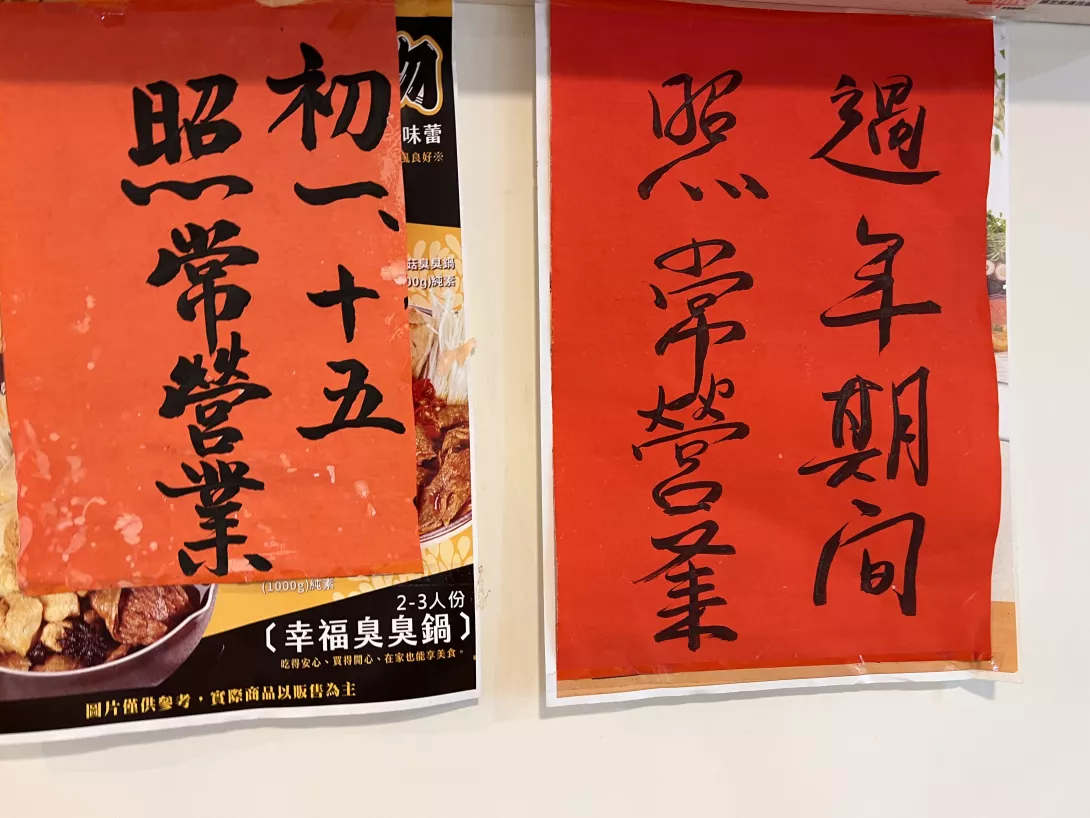 過年期間
照常營業
初一、十五
照常營業
味蕾
風良好※
菇臭臭鍋
00g)純素
(1000g)純素
2-3人份
〔幸福臭臭鍋〕
吃得安心、買得開心、在家也能享美食。
圖片僅供參考，實際商品以販售為主